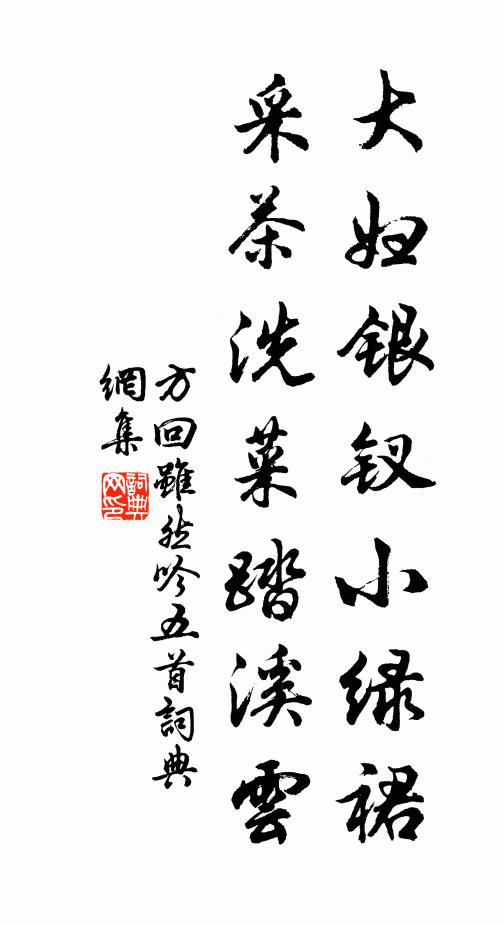 大妇银钗小绿裙
采茶洗菜踏溪雲
方回雖然吟五首詞典
網集
詞典
网印